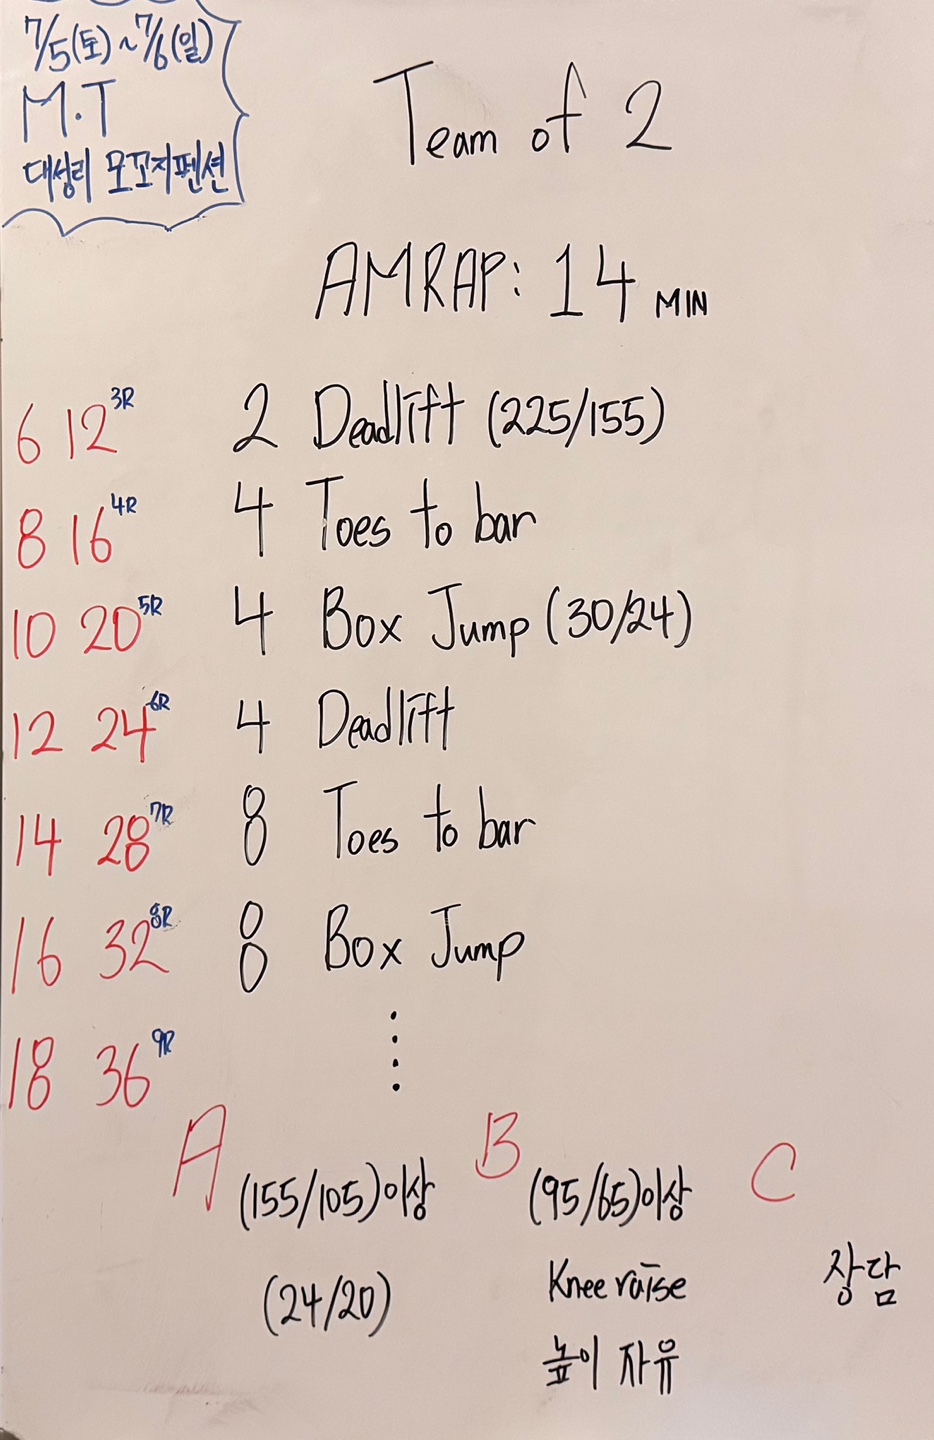 7/5(토)~7/6(일)
M.T
대성리 모꼬지펜션
Team of 2
AMRAP: 14 MIN
6 12 3R
8 16 4R
10 20 5R
12 24 6R
14 28 7R
16 32 8R
18 36 9R
2 Deadlift (225/155)
4 Toes to bar
4 Box Jump (30/24)
4 Deadlift
8 Toes to bar
8 Box Jump
A
(155/105)이상
(24/20)
B
(95/65)이상
Knee raise
높이 자유
C
장담